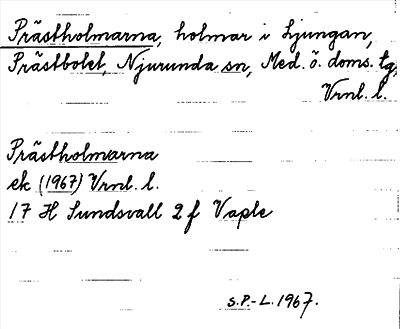 Prästholmarna, holmar i Ljungan,
Prästbolet, Njurunda sn, Med. ö. doms. tg,
Vrnl. l.
Prästholmarna
ek (1967) Vrnl. l.
17 H Sundsvall 2 f Vaple
S.P.-L. 1967.